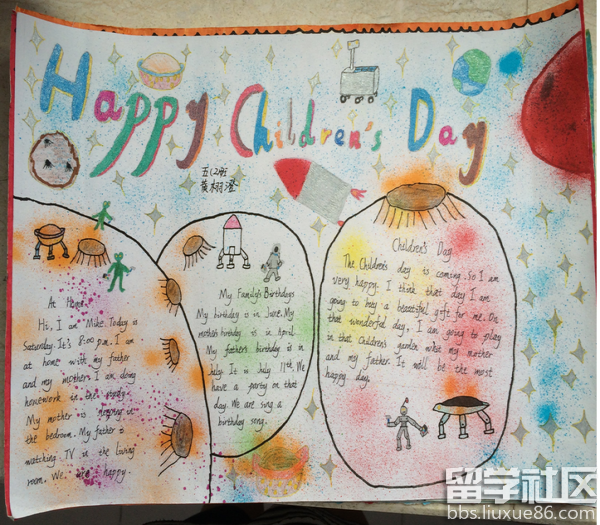 Happy Children's Day
五(2)班
黄栩澄
At Home
Hi, I am Mike. Today is
Saturday. It's 8:00 p.m. I am
at home with my father
and my mother. I am doing
homework in the study.
My mother is sleeping in
the bedroom. My father is
watching TV in the living
room. We are happy.
My Family's Birthdays
My birthday is in June. My
mother's birthday is in April.
My father's birthday is in
July. It is July 11th. We
have a party on that
day. We are sing a
birthday song.
Children's Day
The Children's day is coming. So I am
very happy. I think that day I am
going to buy a beautiful gift for me. On
that wonderful day. I am going to play
in that Children's garden with my mother
and my father. It will be the most
happy day.
留学社区
bbs.liuxue86.com